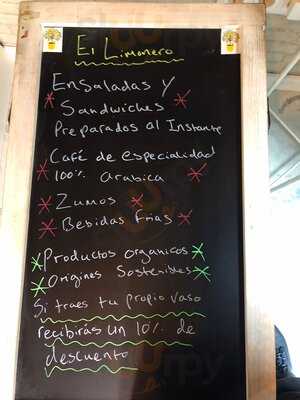 El Limonero
Ensaladas y
Sandwiches
Preparados al Instante
Café de especialidad
100% arabica
Zumos
Bebidas frias
Productos organicos
Origines Sostenibles
Si traes tu propio vaso
recibirás un 10% de
descuento